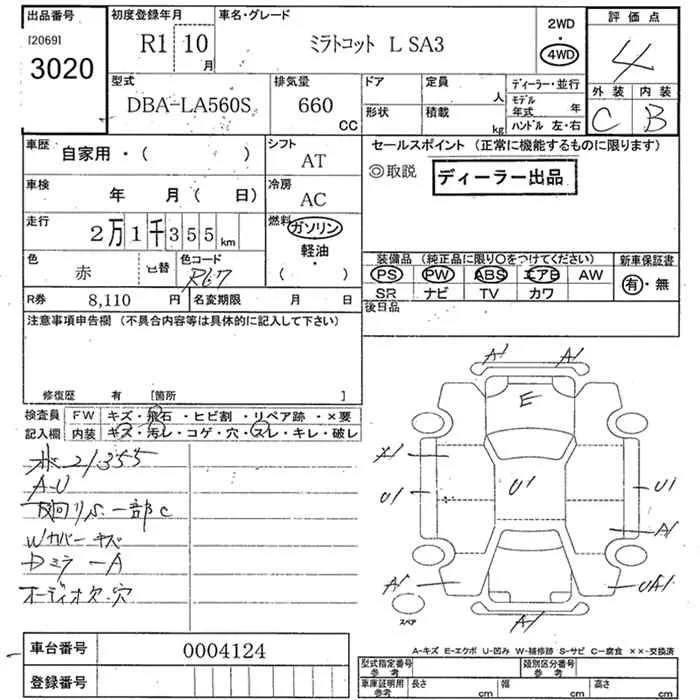 出品番号
[2069]
3020
初度登録年月
R1 10月
車名・グレード
ミラトコット L SA3
2WD
4WD
評価点
4
外装 内装
C B
型式
DBA-LA560S
排気量
660 CC
ドア
定員 人
形状
積載 kg
ディーラー・並行
モデル年式 年
ハンドル 左・右
車歴
自家用・( )
シフト
AT
車検
年 月( 日)
冷房
AC
走行
2万1千355km
燃料
ガソリン
軽油
・
( )
色
赤
色替
色コード
R67
R券 8,110 円
名変期限 月 日
セールスポイント (正常に機能するものに限ります)
◎取説
ディーラー出品
装備品 (純正品に限り〇をつけてください)
PS PW ABS エアB AW
SR ナビ TV カワ
新車保証書
有・無
後日品
注意事項申告欄 (不具合内容等は具体的に記入して下さい)
修復歴 有 [箇所 ]
検査員記入欄
FW キズ・飛石・ヒビ割・リペア跡・×要
内装 キズ・汚レ・コゲ・穴・スレ・キレ・破レ
21355
A-U
下廻りS. 一部C
Wカバーキズ
Dミラ-A
オーディオ欠.穴
A1 A1
E
A1
U1 U1 U1
A1
A1 UA1
A1
スペア
A-キズ E-エクボ U-凹み W-補修跡 S-サビ C-腐食 ××-交換済
車台番号 0004124
登録番号
型式指定番号 参考
類別区分番号 参考
車庫証明用 参考
長さ cm 幅 cm 高さ cm